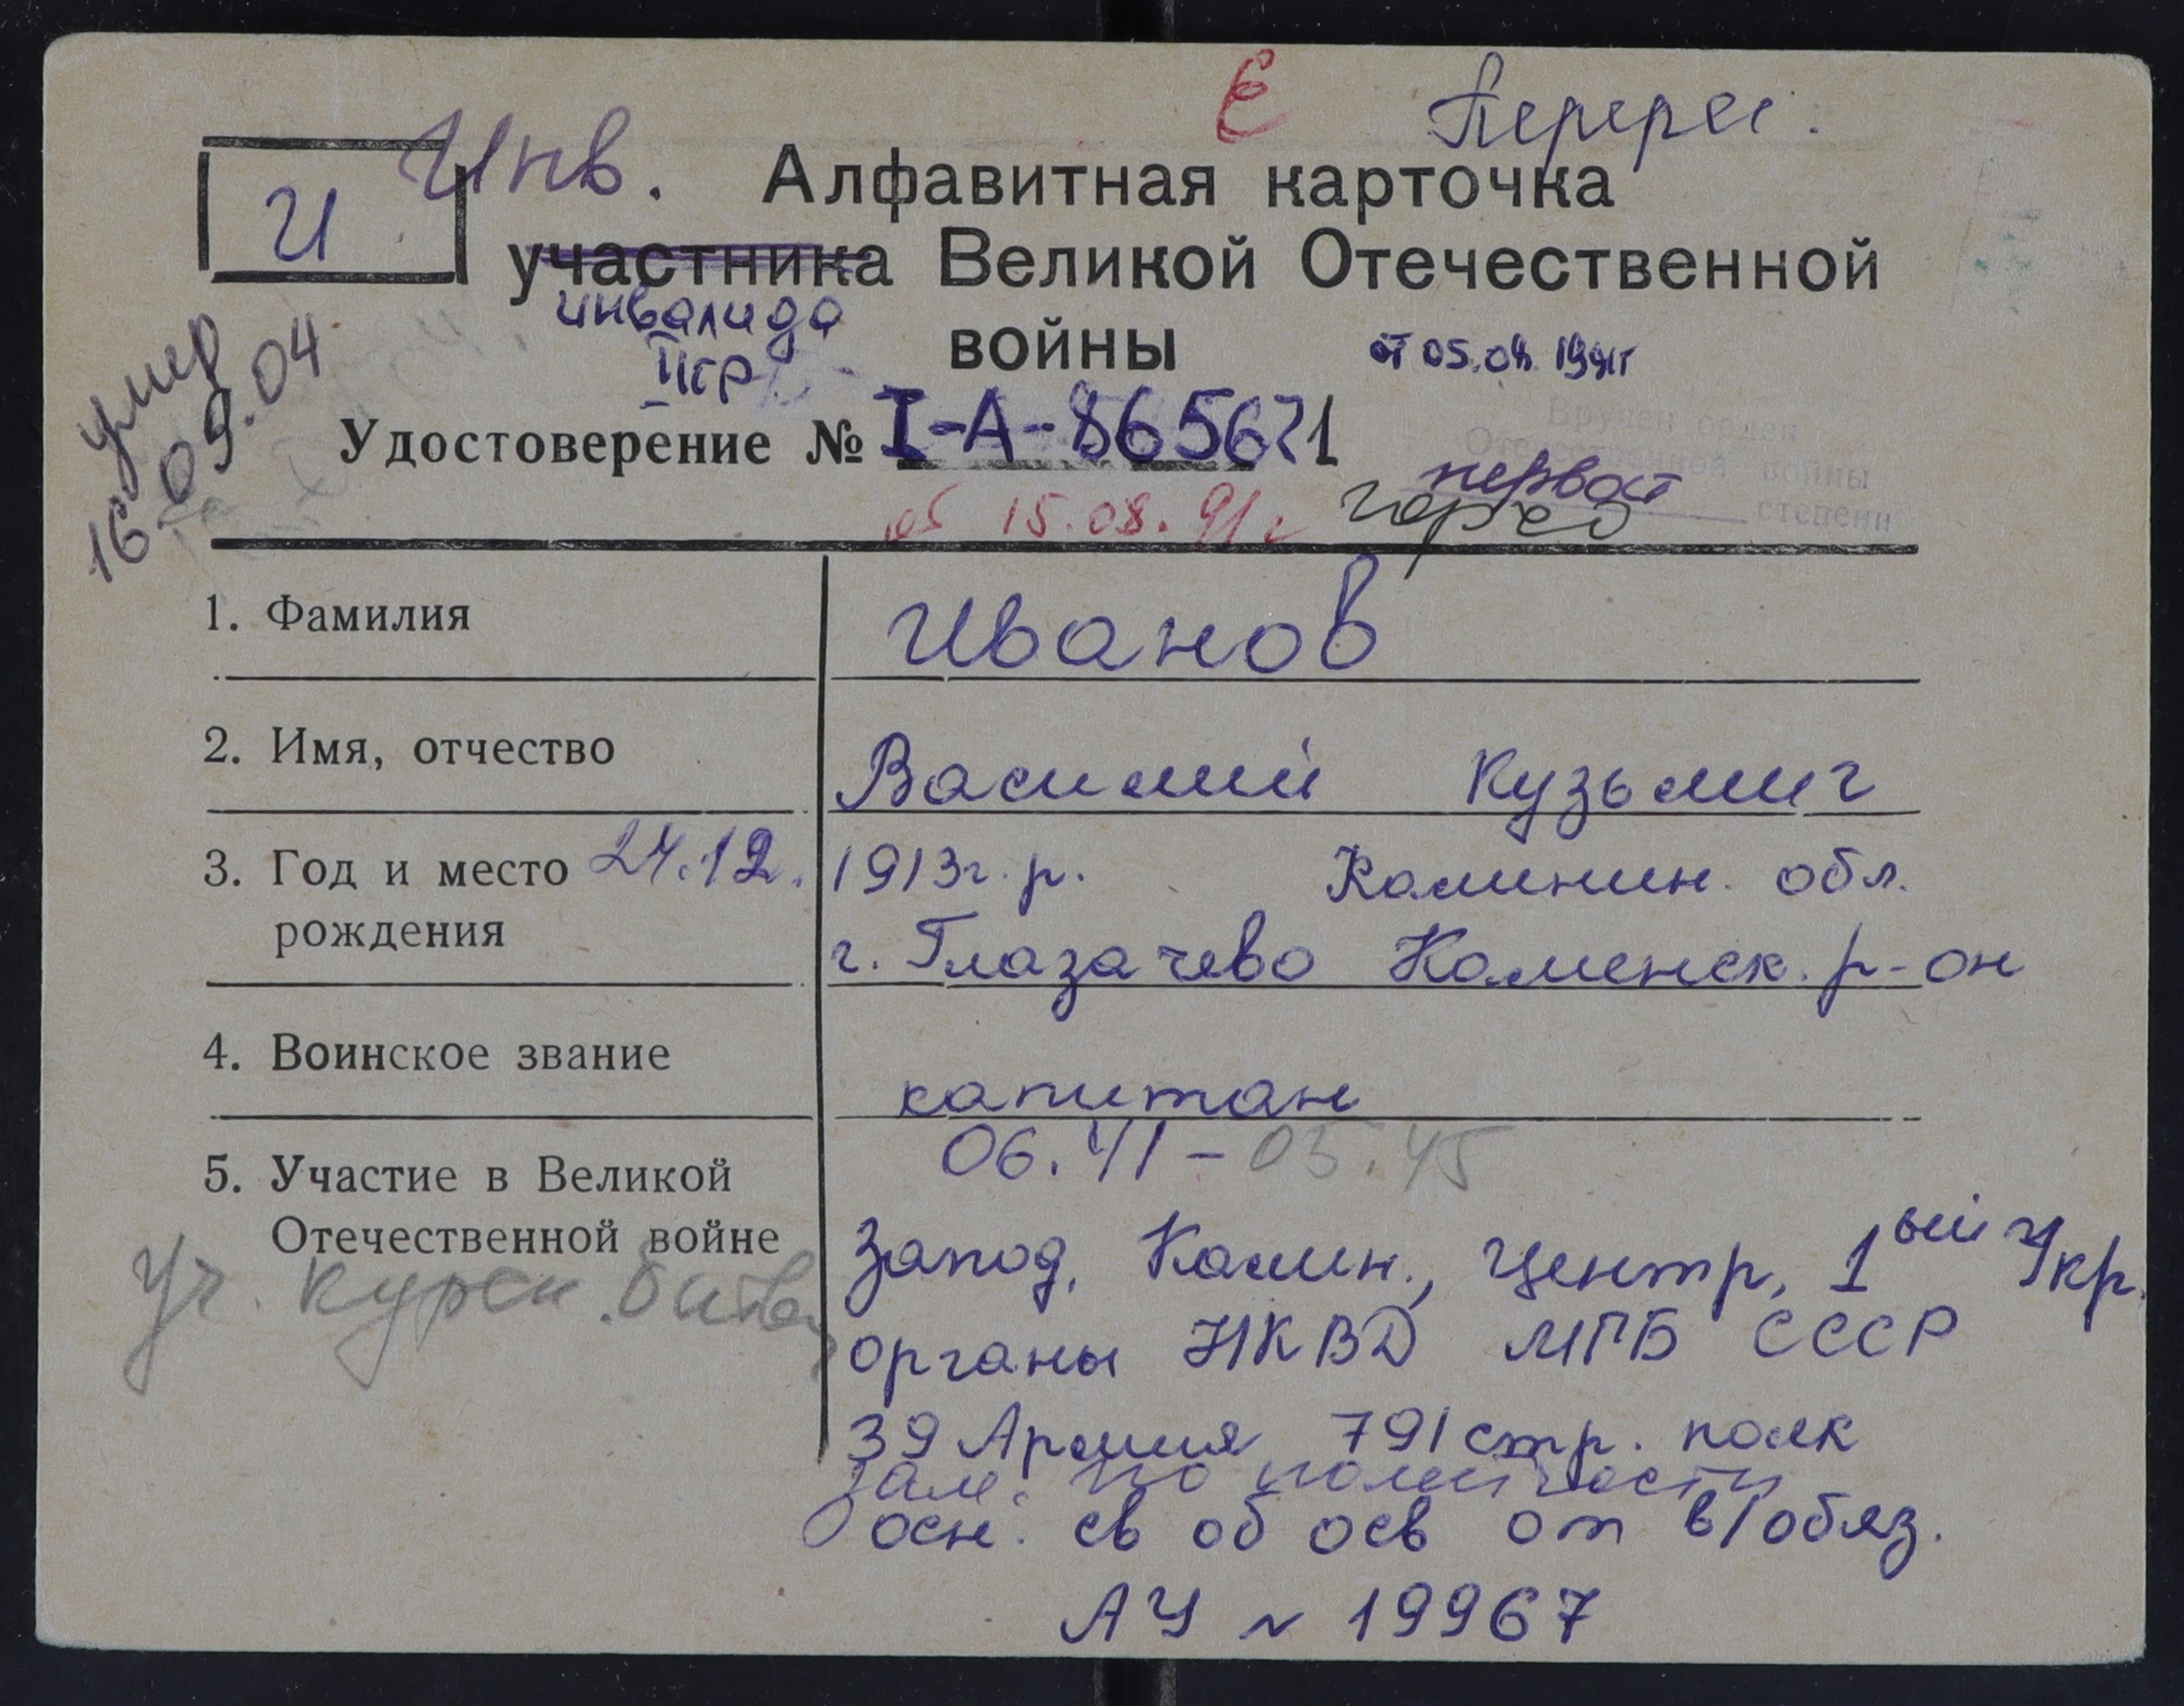 Е Перерег.
И Инв. Алфавитная карточка
участника Великой Отечественной
инвалида
войны
IIгр
от 05.08.1991г
умер
16.09.04
Удостоверение № I-А-865621
Вручен орден
Отечественной войны
первой степени
от 15.08.91г
1. Фамилия Иванов
2. Имя, отчество Василий Кузьмич
3. Год и место 24.12. 1913г.р. Калинин. обл.
рождения г. Глазачево Каменск. р-он
4. Воинское звание капитан
5. Участие в Великой 06.41-05.45
Отечественной войне Запад, Калин., Центр, 1ый Укр.
Уч. Курск. битвы
органы НКВД МГБ СССР
39 Армия 791 стр. полк
зам. по политчасти
осн. св об осв от в/обяз.
АУ № 19967